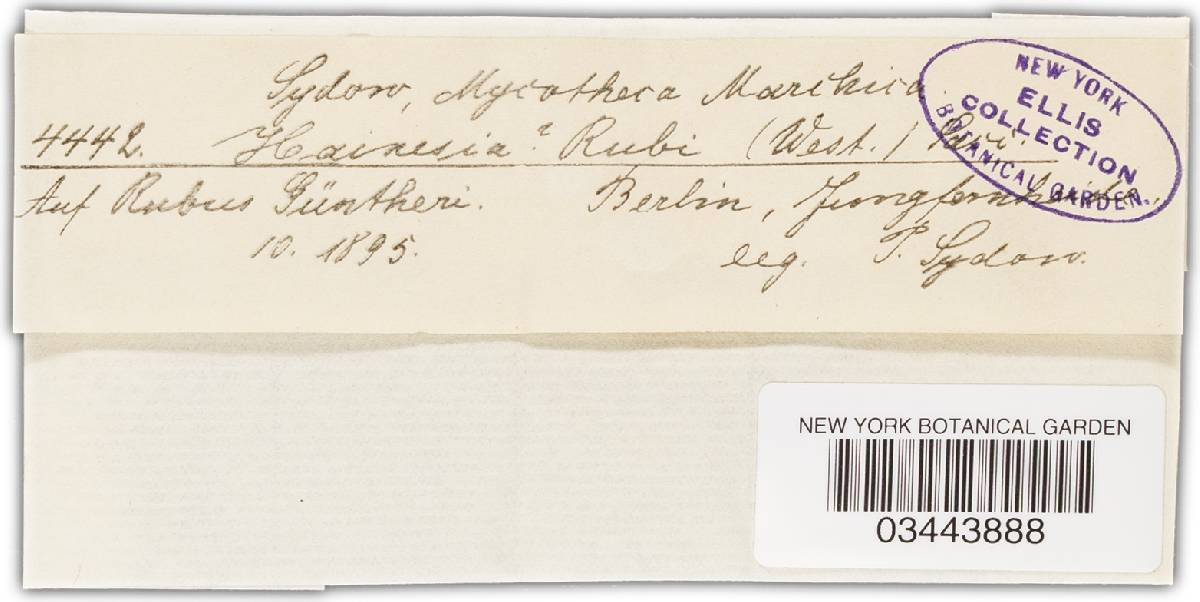 Sydow, Mycotheca Marchica.
4442. Hainesia? Rubi (West.) Sacc.
Auf Rubus Güntheri. Berlin, Jungfernheide.,
10. 1895. leg. P. Sydow.
NEW YORK
ELLIS
COLLECTION
BOTANICAL GARDEN.
NEW YORK BOTANICAL GARDEN
03443888